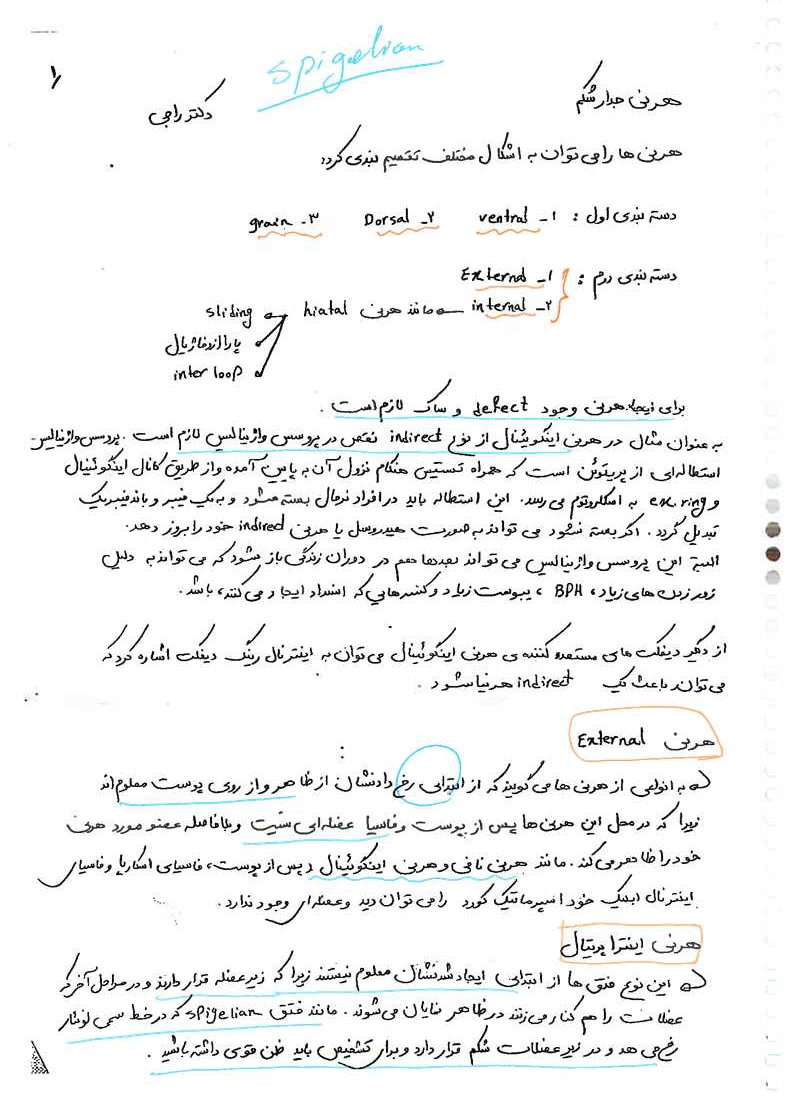 spigelian
۱
هرنی جدار شکم
دکتر راجی
هرنی ها را می توان به اشکال مختلف تقسیم بندی کرد:
دسته بندی اول : ۱_ ventral ۲_ Dorsal ۳_ grain
دسته بندی دوم : ۱_ External
۲_ internal مانند هرنی hiatal sliding
پارا ازوفاژیال
inter loop
برای ایجاد هرنی وجود defect و ساک لازم است .
به عنوان مثال در هرنی اینگوئینال از نوع indirect نقص در پروسس واژینالیس لازم است . پروسس واژینالیس
استطاله ای از پریتوئن است که همراه تستیس هنگام نزول آن به پایین آمده و از طریق کانال اینگوئینال
و ex.ring به اسکلروتوم می رسد. این استطاله باید در افراد نرمال بسته میشود و به یک فیبر و باند فیبریک
تبدیل گردد . اگر بسته نشود می تواند به صورت هیدروسل یا هرنی indired خود را بروز دهد.
البته این پروسس واژینالیس می تواند بعدها هم در دوران زندگی باز بشود که می تواند به دلیل
زور زدن های زیاد ، BPH ، یبوست زیاد و کنسرهایی که انسداد ایجاد می کنند، باشد .
از دیگر دیفکت های مستعد کننده ی هرنی اینگوئینال می توان به اینترنال رینگ دیفکت اشاره کرد که
می تواند باعث یک indirect هرنیا شود .
هرنی External :
به انواعی از هرنی ها می گویند که از ابتدای رخ دادنشان از ظاهر و از روی پوست معلوم اند
زیرا که در محل این هرنی ها پس از پوست و فاسیا عضله ای نیست و بلافاصله عضو مورد هرنی
خود را ظاهر می کند . مانند هرنی نافی و هرنی اینگوئینال ( پس از پوست، فاسیای اسکارپا و فاسیای
اینترنال ابلیک خود اسپرماتیک کورد را می توان دید و عضله ای وجود ندارد .
هرنی اینترا پریتال
این نوع فتق ها از ابتدای ایجاد شدنشان معلوم نیستند زیرا که زیر عضله قرار دارند و در مراحل آخر که
عضلات را هم کنار می زنند در ظاهر نمایان می شوند . مانند فتق spigelian که در خط سمی لونار
رخ می دهد و در زیر عضلات شکم قرار دارد و برای تشخیص باید ظن قوی داشته باشید .